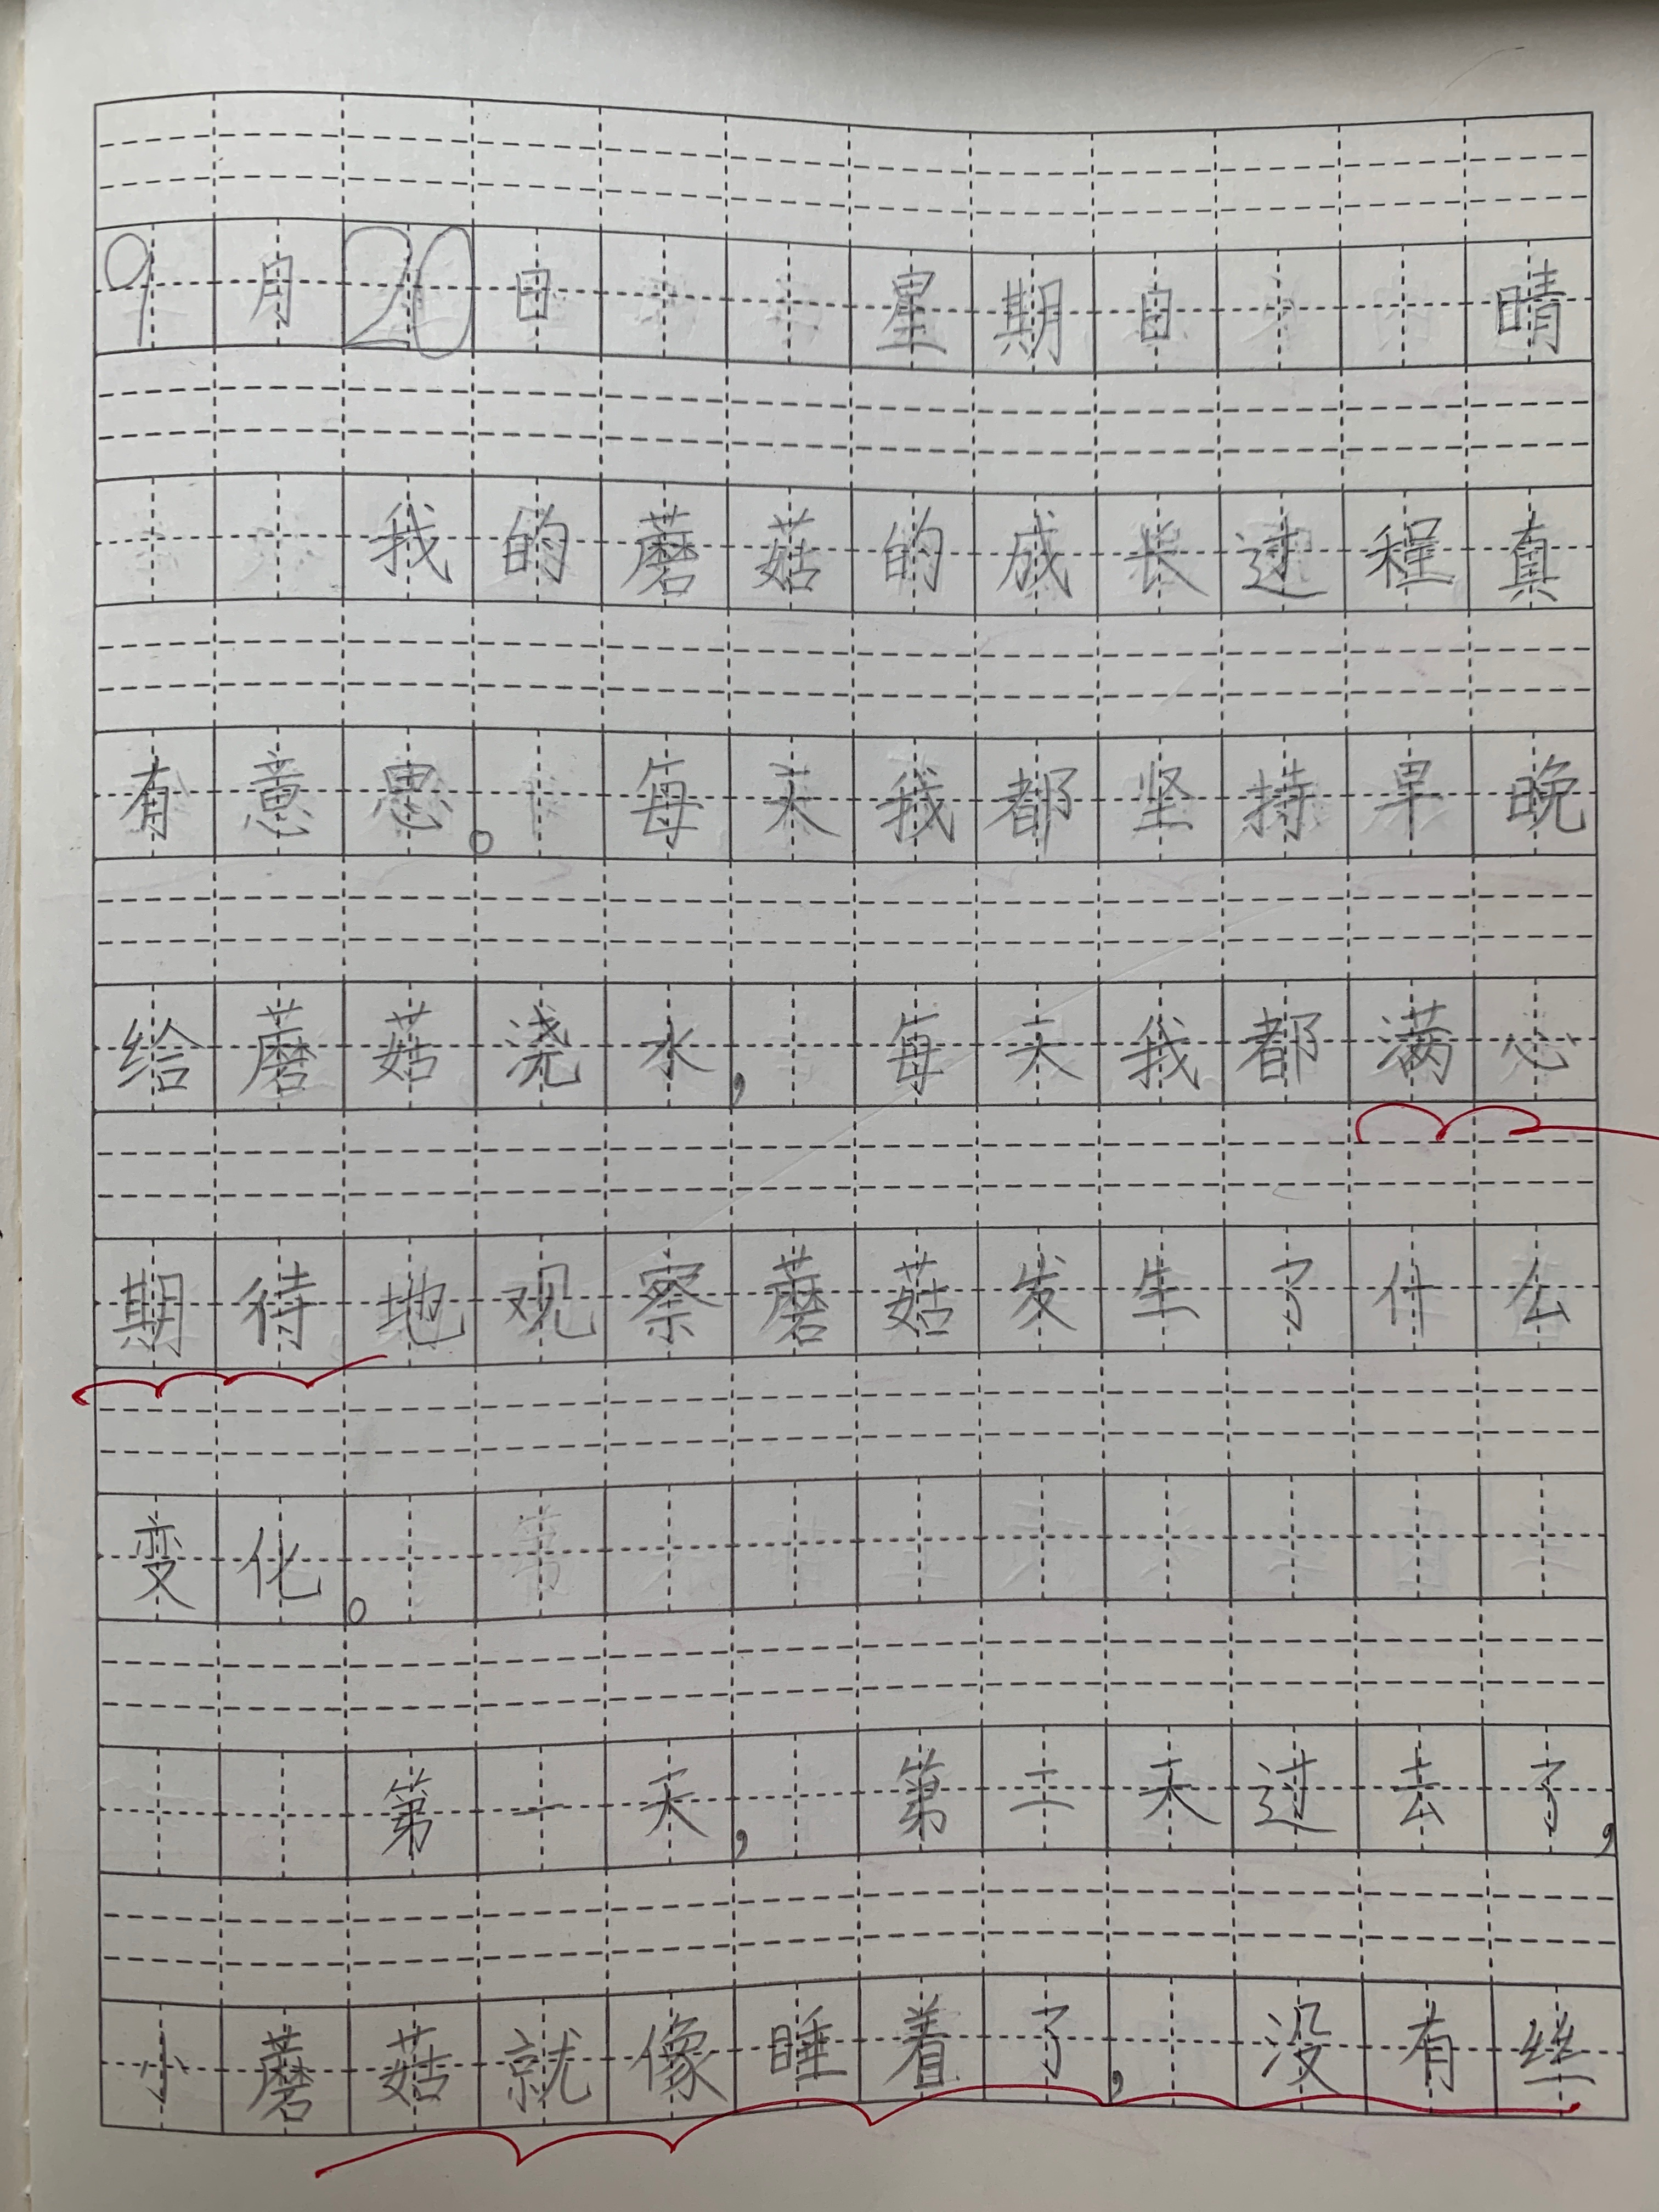 9月20日 星期日 晴
我的蘑菇的成长过程真
有意思。每天我都坚持早晚
给蘑菇浇水,每天我都满心
期待地观察蘑菇发生了什么
变化。
第一天,第二天过去了,
小蘑菇就像睡着了,没有丝